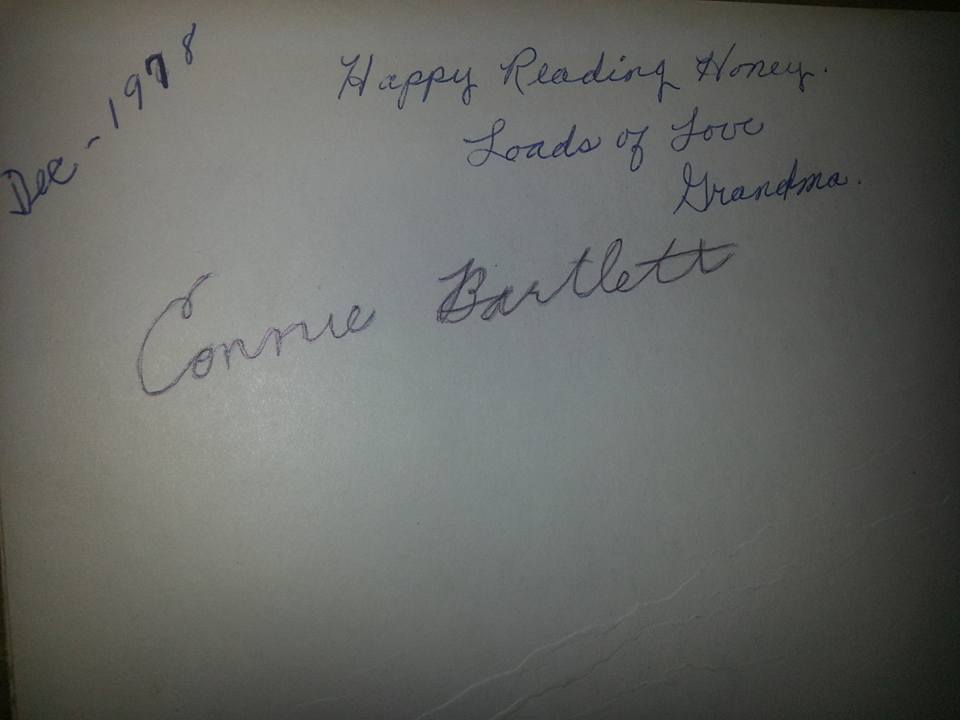 Dec - 1978
Happy Reading Honey.
Loads of Love
Grandma.
Connie Bartlett